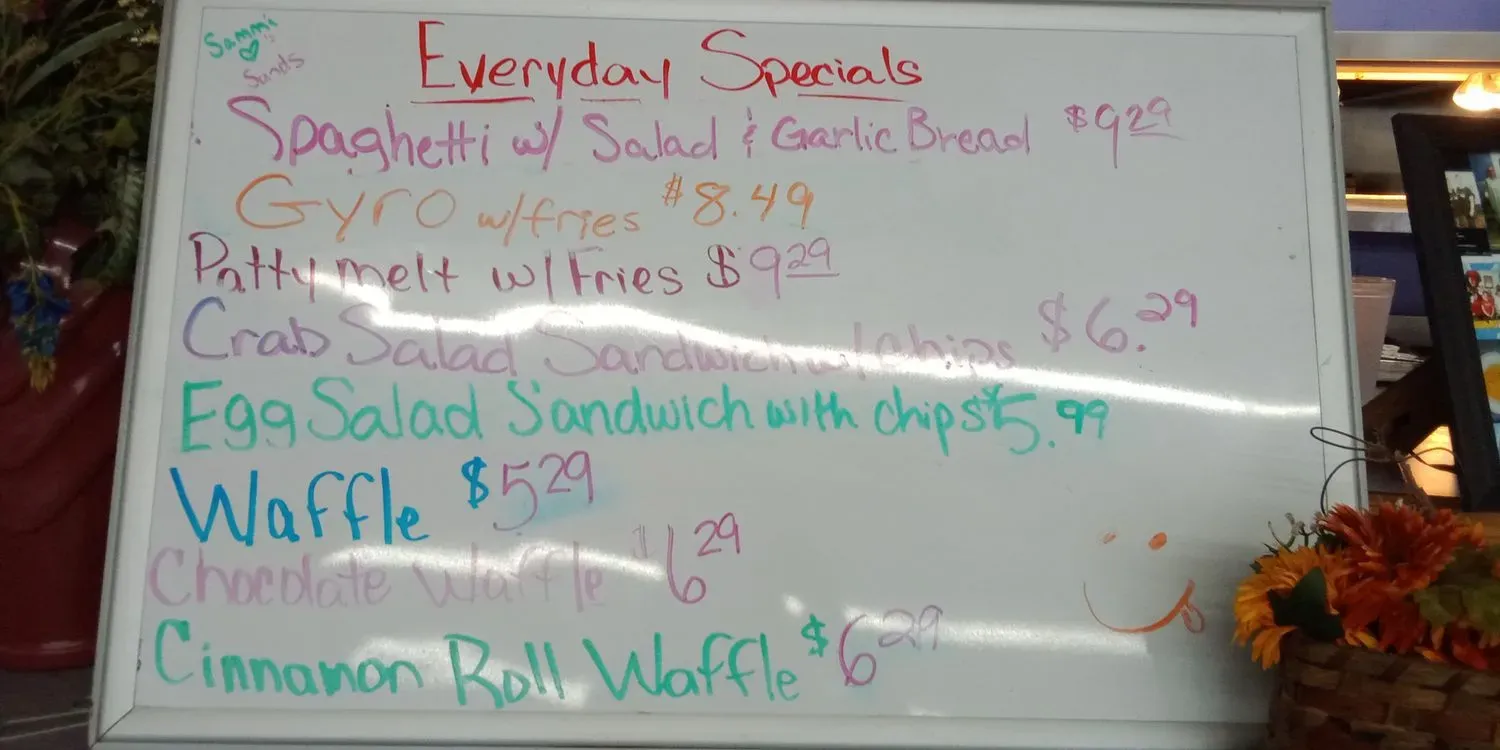 Sammi
Sands
Everyday Specials
Spaghetti w/ Salad & Garlic Bread $9 29
Gyro w/fries $8.49
Patty melt w/ Fries $9 29
Crab Salad Sandwich w/ chips $6.29
Egg Salad Sandwich with chips $5.99
Waffle $5 29
Chocolate Waffle $6 29
Cinnamon Roll Waffle $6 29